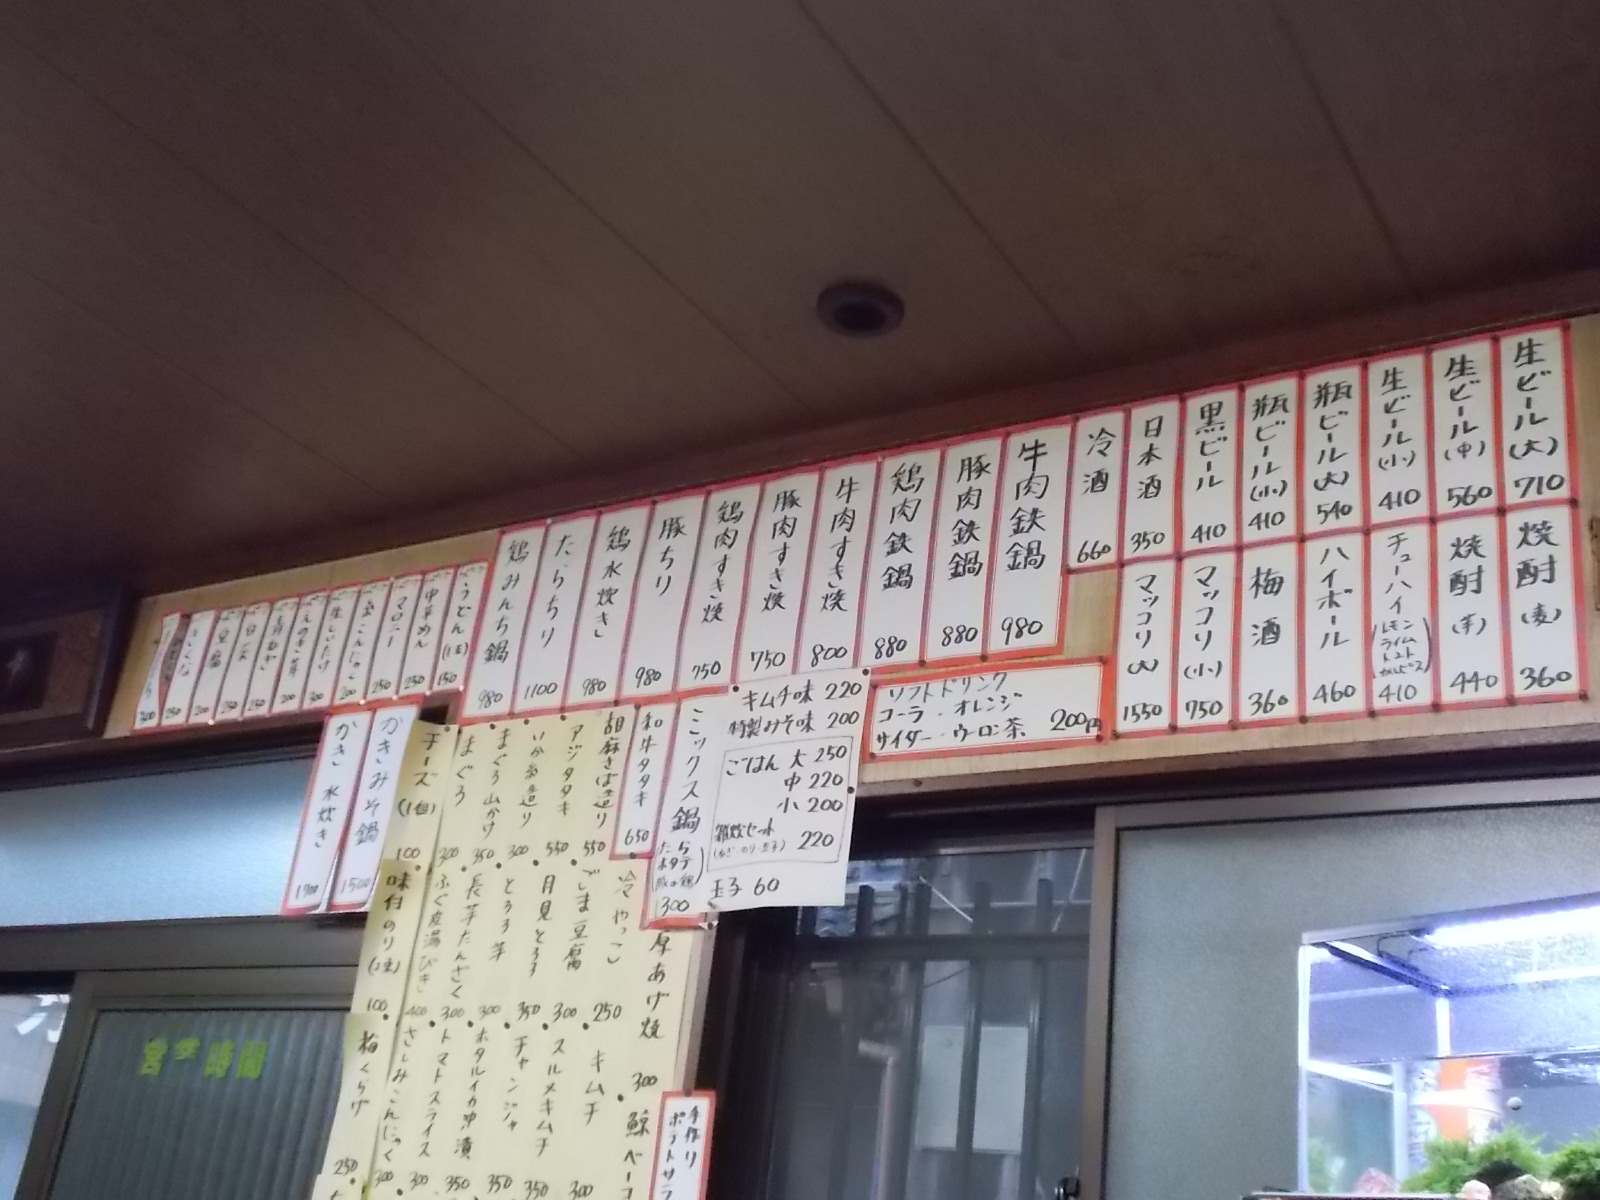 生ビール(大) 710
生ビール(中) 560
生ビール(小) 410
瓶ビール(大) 540
瓶ビール(小) 410
黒ビール 410
日本酒 350
冷酒 660
焼酎(麦) 360
焼酎(芋) 440
チューハイ(レモン ライム トマト カルピス) 410
ハイボール 460
梅酒 360
マッコリ(小) 750
マッコリ(大) 1550
牛肉鉄鍋 980
豚肉鉄鍋 880
鶏肉鉄鍋 880
牛肉すき焼 800
豚肉すき焼 750
鶏肉すき焼 750
豚ちり 980
鶏水炊き 980
たらちり 1100
鶏みんち鍋 980
うどん(1玉) 150
中華めん 250
マロニー 250
糸こんにゃく 200
生しいたけ 300
えのき茸 200
青ねぎ 250
白菜 250
豆腐 200
きくな 250
300
ソフトドリンク
コーラ・オレンジ
サイダー・ウーロン茶 200円
キムチ味 220
特製みそ味 200
ごはん 大 250
中 220
小 200
雑炊セット
(ねぎ・のり・玉子) 220
玉子 60
ミックス鍋(たら ホタテ 豚or鶏) 1300
和牛タタキ 650
胡麻さば造り 550
アジタタキ 550
いか糸造り 300
まぐろ山かけ 350
まぐろ 300
チーズ(1個) 100
かきみそ鍋 1500
かき水炊き
厚あげ焼 300
冷やっこ 250
ごま豆腐 300
月見とろろ 350
とろろ芋 300
長芋たんざく 300
ふぐ皮湯びき 400
味付のり(2束) 100
鯨ベーコ
キムチ 300
スルメキムチ 350
チャンジャ 350
ホタルイカ沖漬 350
トマトスライス 300
さしみこんにゃく 300
梅くらげ 250
手作り
ポテトサラ
営業時間